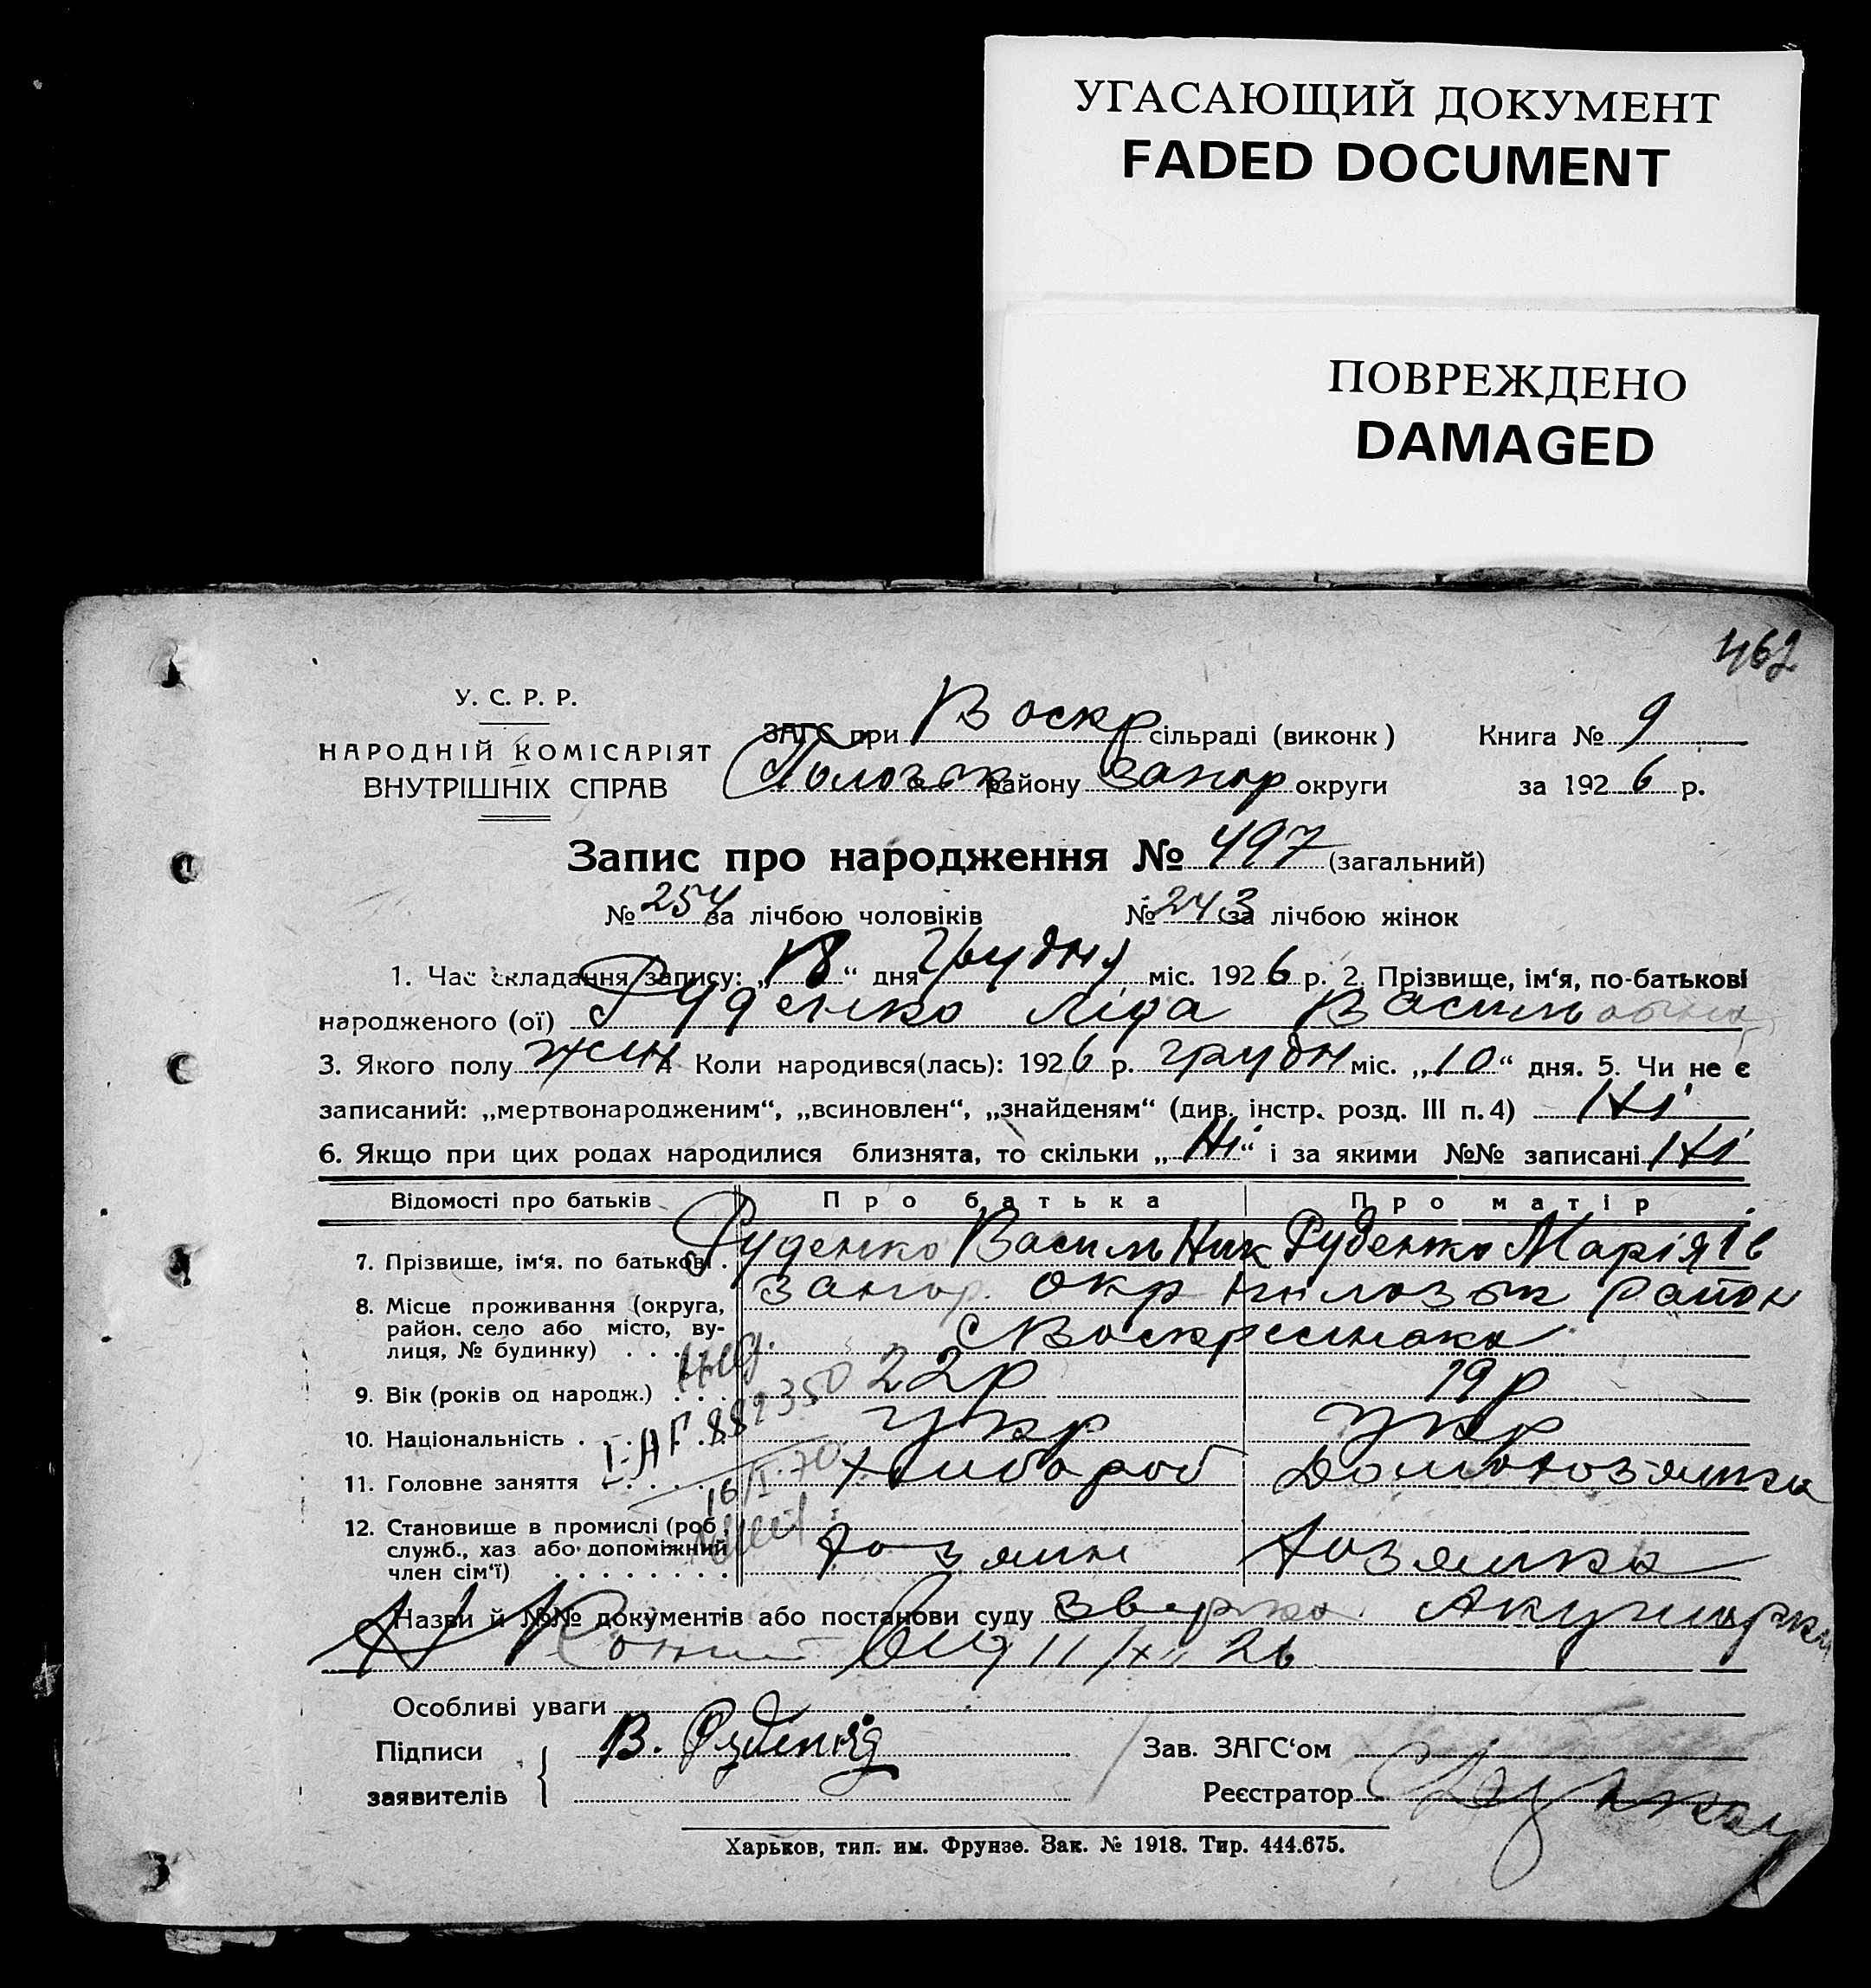 УГАСАЮЩИЙ ДОКУМЕНТ
FADED DOCUMENT
ПОВРЕЖДЕНО
DAMAGED
462
У. С. Р. Р.
НАРОДНІЙ КОМІСАРІЯТ
ВНУТРІШНІХ СПРАВ
ЗАГС при Воскр сільраді (виконк)
Пологівськ району Запор округи
Книга № 9
за 1926 р.
Запис про народження № 497 (загальний)
№ 254 за лічбою чоловіків № 243 за лічбою жінок
1. Час складання запису: „ “ дня Грудня міс. 1926 р. 2. Прізвище, ім‘я, по-батькові
народженого (ої) Руденко Ліда Васильовна
3. Якого полу жін 4 Коли народився(лась): 1926 р. грудн міс. „10“ дня. 5. Чи не є
записаний: „мертвонародженим“, „всиновлен“, „знайденям“ (див. інстр. розд. III п. 4) Ні
6. Якщо при цих родах народилися близнята, то скільки „Ні“ і за якими №№ записані Ні
Відомості про батьків Про батька Про матір
7. Прізвище, ім‘я, по батькові Руденко Василь Ник Руденко Марія Ів
8. Місце проживання (округа, район, село або місто, вулиця, № будинку) Запор. окр Пологівськ район
с Воскресенка
9. Вік (років од народж.) 22 р 19 р
10. Національність Укр Укр
I-АГ 882350
11. Головне заняття Хлибороб Домохозяйка
16/I-70
12. Становище в промислі (роб., служб., хаз або допоміжний член сім‘ї) Хозяин Хозяйка
Назви й №№ документів або постанови суду Акушерки
від 11/XII 26
Особливі уваги
Підписи заявителів В. Руденко
Зав. ЗАГС‘ом
Реєстратор
Харьков, тип. им. Фрунзе. Зак. № 1918. Тир. 444.675.